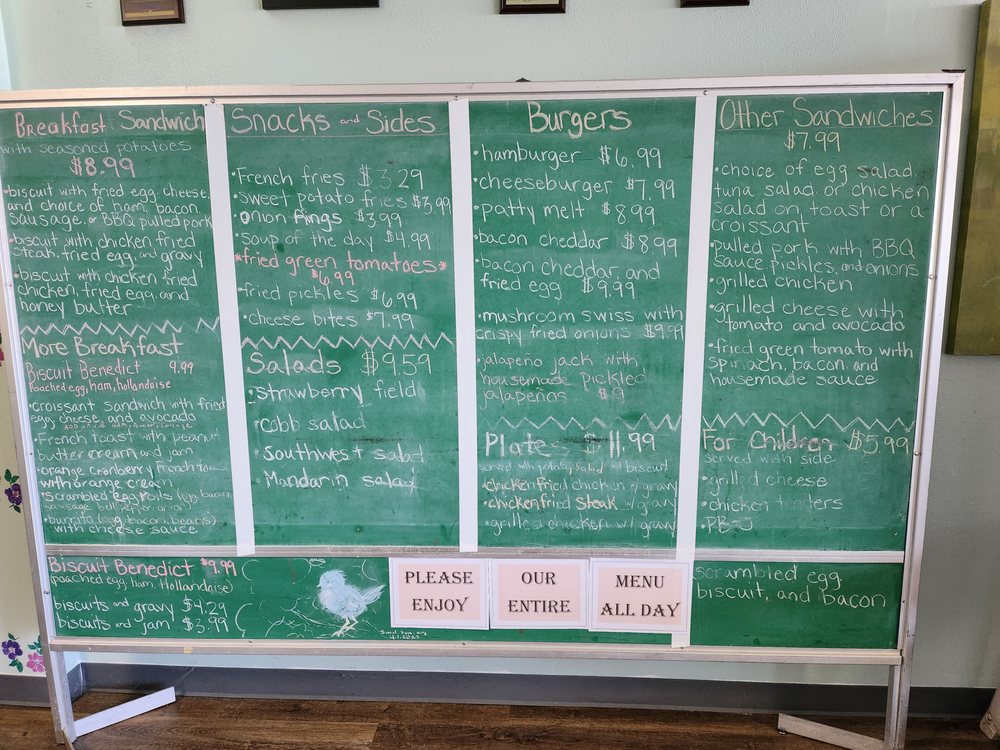 Breakfast Sandwich
with seasoned potatoes
$8.99
•biscuit with fried egg, cheese,
and choice of ham, bacon,
sausage, or BBQ pulled pork
•biscuit with chicken fried
steak, fried egg, and gravy
•biscuit with chicken fried
chicken, fried egg, and
honey butter
More Breakfast
Biscuit Benedict 9.99
Poached egg, ham, hollandaise
•croissant sandwich with fried
egg, cheese, and avocado
•French toast with peanut
butter cream and jam
orange cranberry French
with orange cream
scrambled egg rolls (egg, bacon,
sausage, bell pepper, onion)
•burrito (egg, bacon, beans)
with cheese sauce
Biscuit Benedict $9.99
(poached egg, ham, Hollandaise)
biscuits and gravy $4.29
biscuits and jam $3.99
Snacks and Sides
•French fries $3.29
•sweet potato fries $3.99
•onion rings $3.99
•soup of the day $4.99
*fried green tomatoes*
$6.99
•fried pickles $6.99
•cheese bites $7.99
Salads $9.59
•strawberry field
•cobb salad
•Southwest salad
•Mandarin salad
Burgers
•hamburger $6.99
•cheeseburger $7.99
•patty melt $8.99
•bacon cheddar $8.99
•bacon cheddar, and
fried egg $9.99
•mushroom swiss with
crispy fried onions
•jalapeño jack with
housemade pickled
jalapeños
Plate $11.99
served with potato, salad biscuit
chicken fried chicken w/ gravy
•chicken fried steak w/ gravy
•grilled chicken w/ gravy
PLEASE
ENJOY
OUR
ENTIRE
MENU
ALL DAY
Other Sandwiches
$7.99
•choice of egg salad,
tuna salad, or chicken
salad on toast or a
croissant
•pulled pork with BBQ
sauce, pickles, and onions
•grilled chicken
•grilled cheese with
tomato and avocado
•fried green tomato with
spinach, bacon, and
housemade sauce
For Children $5.99
served with side
•grilled cheese
•chicken tenders
•PB+J
scrambled egg
biscuit, and bacon